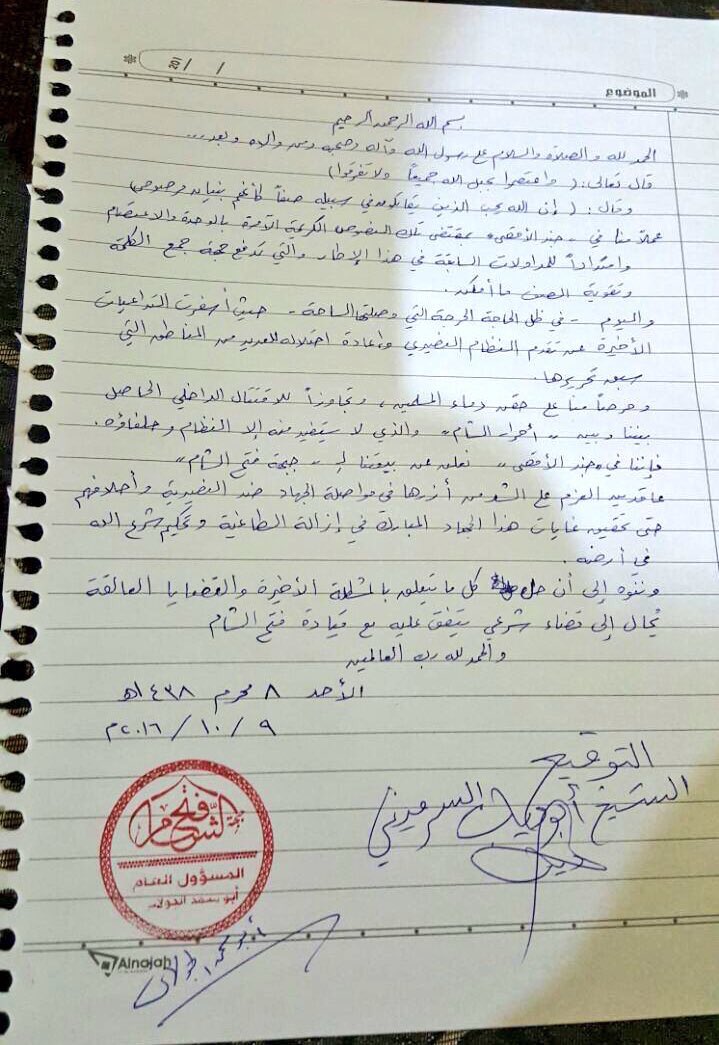 الموضوع
/ / 201
بسم الله الرحمن الرحيم
الحمد لله والصلاة والسلام على رسول الله وآله وصحبه ومن والاه وبعد...
قال تعالى: (واعتصموا بحبل الله جميعاً ولا تفرقوا)
وقال: (إن الله يحب الذين يقاتلون في سبيله صفاً كأنهم بنيان مرصوص)
عملاً منا في "جند الأقصى" بمقتضى تلك النصوص الكريمة الآمرة بالوحدة والاعتصام
وامتداداً للمداولات السابقة في هذا الإطار والتي تدفع جمع الكلمة
وتقوية الصف ما أمكن.
واليوم - في ظل الحاجة الحرجة التي وصلتها الساحة - حيث أسفرت التداعيات
الأخيرة عن تقدم النظام النصيري وإعادة احتلاله العديد من المناطق التي
سبق تحريرها.
وحرصاً منا على حقن دماء المسلمين، وتجاوزاً للاقتتال الداخلي الحاصل
بيننا وبين "أحرار الشام" والذي لا يستفيد منه إلا النظام وحلفاؤه.
فإننا في "جند الأقصى" نعلن عن بيعتنا لـ "جبهة فتح الشام"
عاقدين العزم على الشد من أزرها في مواصلة الجهاد ضد النصيرية وأحلافهم
حتى تحقيق غايات هذا الجهاد المبارك في إزالة الطاغية وتحكيم شرع الله
في أرضه.
وننوه إلى أن حل كل ما يتعلق بالمشكلة الأخيرة والقضايا العالقة
يُحال إلى قضاء شرعي يتفق عليه مع قيادة فتح الشام
والحمد لله رب العالمين
الأحد ٨ محرم ١٤٣٨هـ
٩ / ١٠ / ٢٠١٦م
التوقيع
الشيخ أبو دياب السرميني
جبهة فتح الشام
المسؤول العام
أبو محمد الجولاني
Alnajah
أبو محمد الجولاني